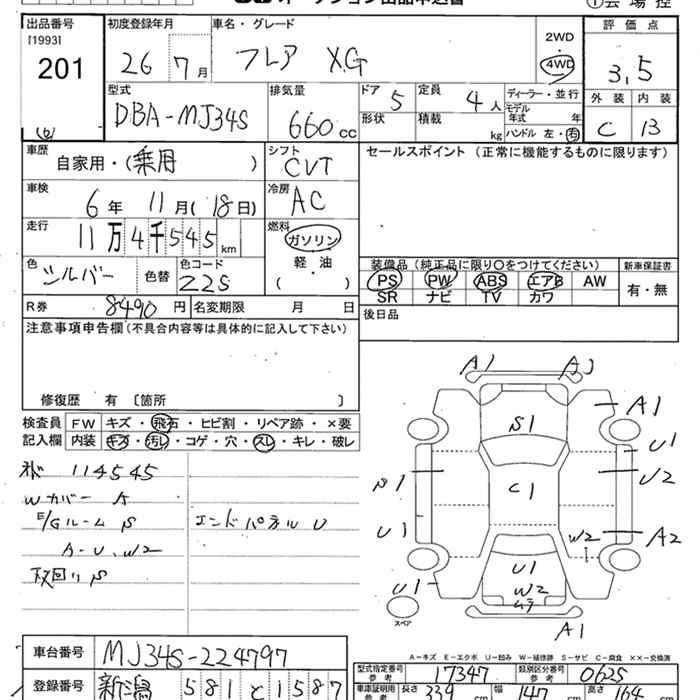 出品番号 初度登録年月 車名・グレード 評価点
[1993] 201 26 7月 フレア XG 2WD 4WD 3.5
型式 DBA-MJ34S 排気量 660cc
ドア 5 定員 4人 ディーラー・並行
形状 積載 kg モデル年式 年
ハンドル 左・右
外装 内装
C B
車歴 自家用・(乗用) シフト CVT
セールスポイント (正常に機能するものに限ります)
車検 6年 11月(18日) 冷房 AC
走行 11万4千545km 燃料 ガソリン 軽・油 ( )
色 シルバー 色替 色コード Z2S
装備品 (純正品に限り○をつけてください) 新車保証書
PS PW ABS エアB AW 有・無
SR ナビ TV カワ
R券 8490円 名変期限 月 日
後日品
注意事項申告欄(不具合内容等は具体的に記入して下さい)
修復歴 有 〔箇所 〕
検査員 FW キズ・飛石・ヒビ割・リペア跡・×要
記入欄 内装 キズ・汚レ・コゲ・穴・スレ・キレ・破レ
114545
Wカバー A
E/Gルーム S エンドパネル U
A-U、W2
下回り S
A1
A1
S1
A1
U1
S1
U2
C1
U1
W2
A2
U1
U1
W2
ムラ
スペア
A1
A-キズ E-エクボ U-凹み W-補修跡 S-サビ C-腐食 XX-交換済
車台番号 MJ34S-224797
型式指定番号 参考 17347 類別区分番号 参考 0625
登録番号 新潟 581 と 1587
車庫証明用 参考 長さ 339 幅 147 高さ 164 cm